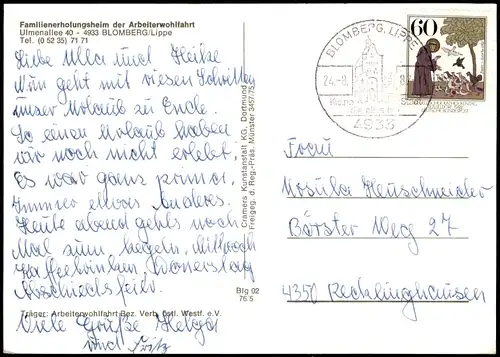 Familienerholungsheim der Arbeiterwohlfahrt
Ulmenallee 40 - 4933 BLOMBERG/Lippe
Tel. (0 52 35) 71 71
Liebe Ulla und Heike
Nun geht mit diesen Schritten
unser Urlaub zu Ende.
So einen Urlaub haben
wir noch nicht erlebt.
Es war ganz prima.
Immer etwas anderes.
Heute abend gehts noch
Mal zum kegeln, Mittwoch
Kaffeetrinken Donnerstag
Abschiedsfeier.
Träger: Arbeiterwohlfahrt Bez. Verb. östl. Westf. e.V.
Viele Grüße Helga
und Fritz
Cramers Kunstanstalt KG, Dortmund
Freigeg. d. Reg.-Präs. Münster 3457/75
Blg 02
76/5
BLOMBERG, LIPPE
24.-8.
4933
60
Frau
Ursula Heuschneider
Börster Weg 27
4350 Recklinghausen